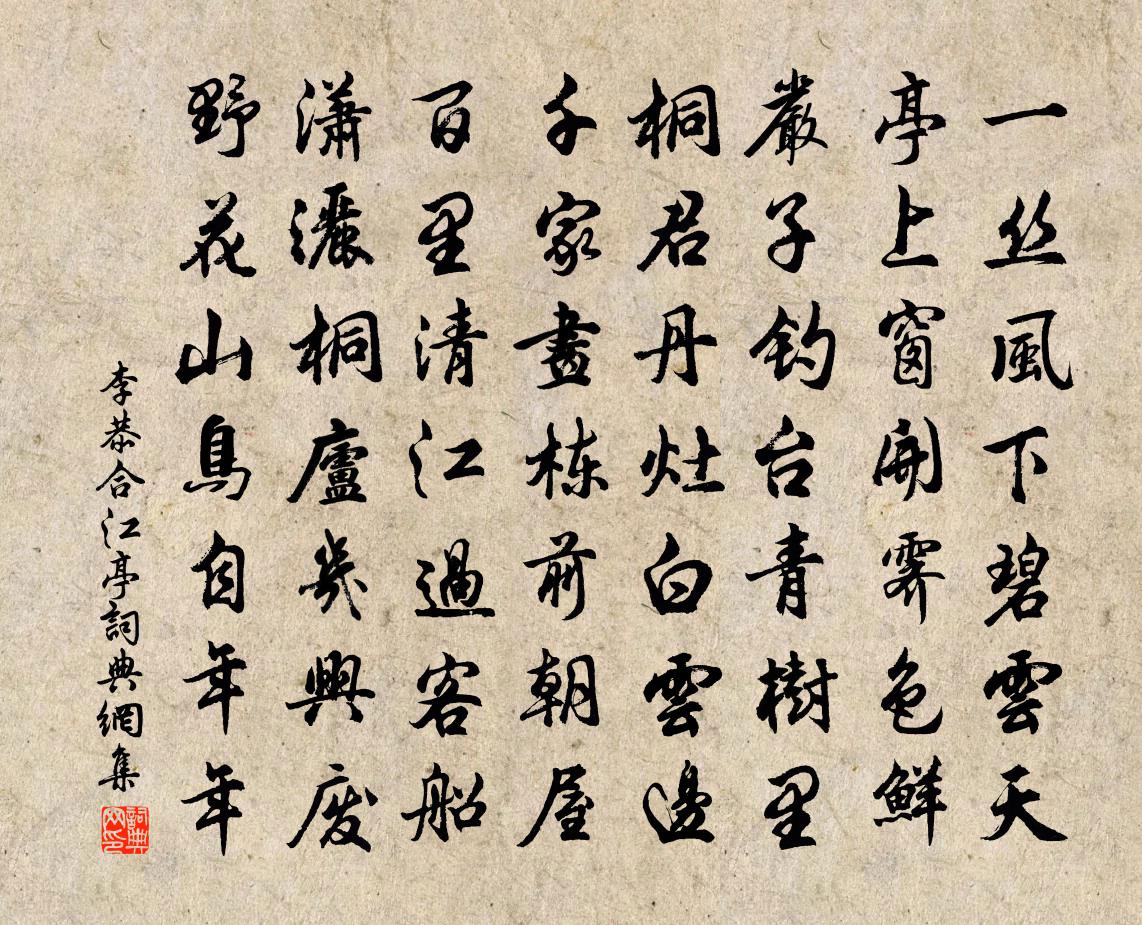 一丝風下碧雲天
亭上窗開霽色鮮
嚴子钓台青樹里
桐君丹灶白雲邊
千家畫栋前朝屋
百里清江過客船
瀟灑桐廬幾興廢
野花山鳥自年年
李恭合江亭詞典網集
詞典网印